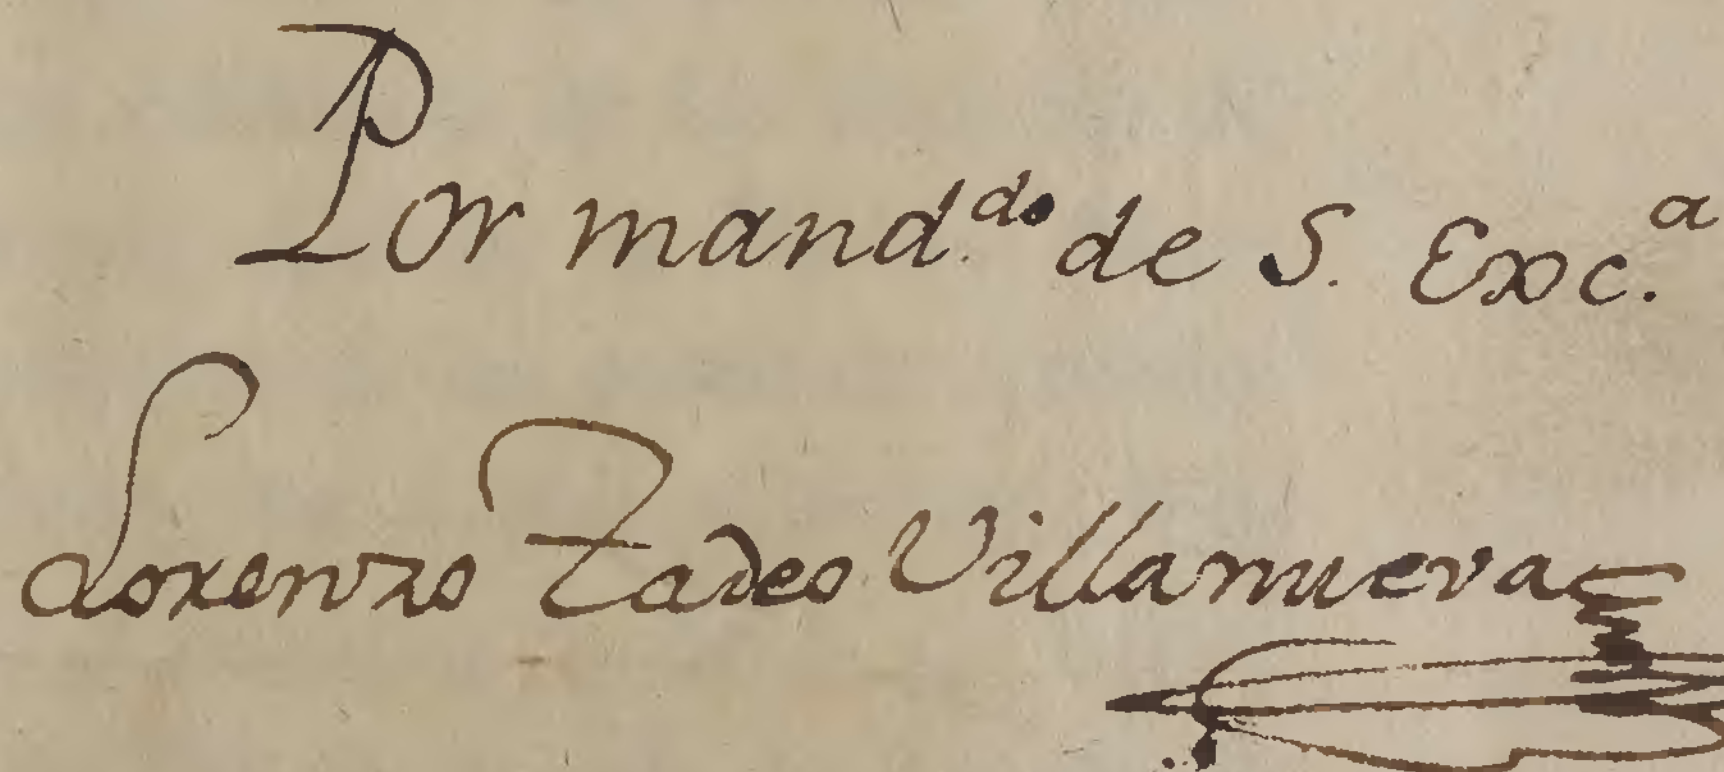 Por mand.do de S. Exc.a
Lorenzo Tadeo Villanueva